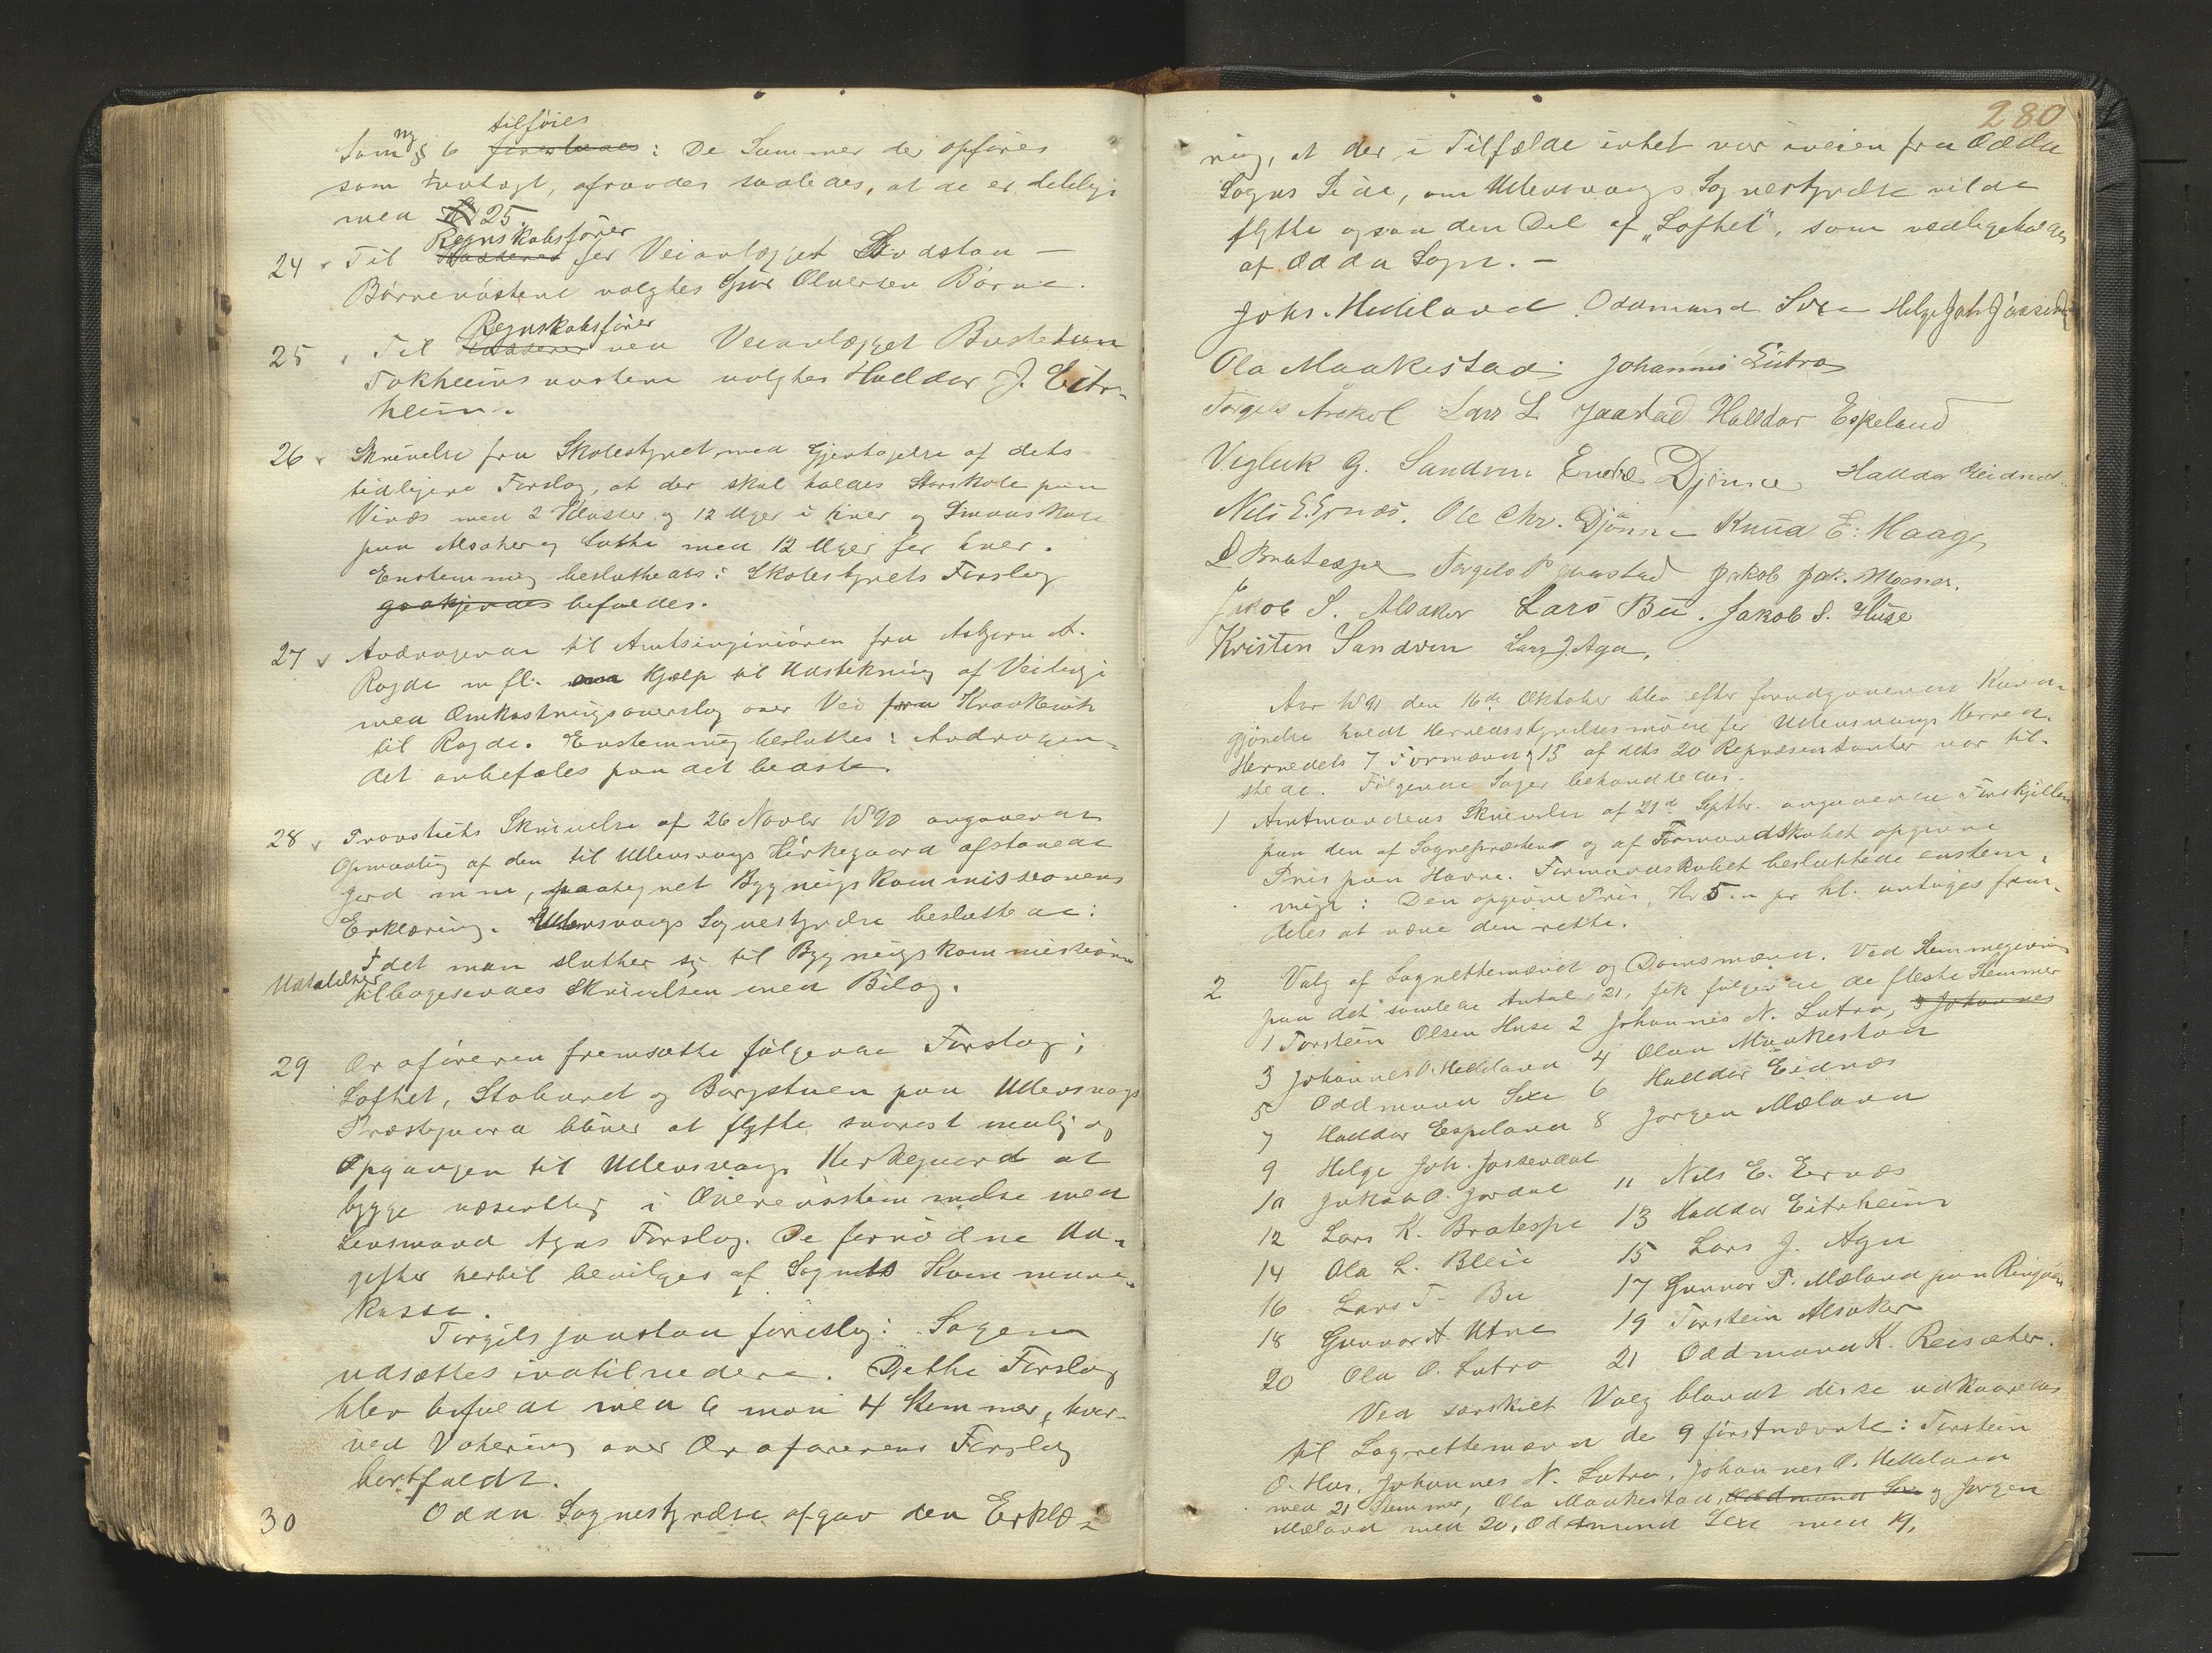 tilføies
Som ny § 6 foreslaaes: De Summer der opføres
som Indtægt, afrundes saaledes, at de er delelige
med 25.
Regnskabsfører
24 Til Kasserer for Veianlægget
Børvenöstene valgtes Gjør Olversen Börve.
Regnskabsfører
25 Til Kasserer ved Veianlægget Bustetun
Tokheimsnostene valgtes Halldor J. Eitr-
heim.
26 Skrivelse fra Skolestyret med Gjentagelse af dets
tidligere Forslag, at der skal holdes Storskole paa
Vines med 2 Klasser og 12 Uger i hver og Smaaskole
paa Alsaker og Lutro med 12 Uger for hver.
Enstemmig besluttedes: Skolestyrets Forslag
godkjendes bifaldes.
27 Andragende til Amtsingeniören fra Asbjørn A.
Ragde m fl. om Hjælp til Udstikning af Veilinje
med Omkostningsoverslag over Vei fra Kraakevik
til Ragde. Enstemmig besluttes: Andragen-
det anbefales paa det bedste.
28 Provstiets Skrivelse af 26 Novbr 1890 angaaende
Opmaaling af den til Ullensvangs Kirkegaard afstaaede
Jord m m, paategnet Bygningskommissionens
Erklæring. Ullensvangs Sognestyrelse besluttede:
Idet man slutter sig til Bygningskommissionens
Udtalelser
tilbagesendes Skrivelsen med Bilag.
29 Ordføreren fremsatte følgende Forslag:
Loftet, Stabured og Borgstuen paa Ullensvangs
Præstegaard bliver at flytte snarest mulig og
Opgangen til Ullensvangs Kirkegaard at
bygge væsentlig i Overensstemmelse med
Lensmand Agas Forslag. De fornødne Ud-
gifter hertil bevilges af Sognets Kommune-
kasse.
Torgils Jaastad foreslog: Sagen
udsættes indtilvidere. Dette Forslag
blev bifaldt med 6 mod 4 Stemmer, hver-
ved Votering over Ordførerens Forslag
bortfaldt.
30 Odda Sognestyrelse afgav den Erklæ-
280
ring, at der i Tilfælde intet var iveien fra Odda
Sogns Side, om Ullensvangs Sognestyrelse vilde
flytte ogsaa den Del af "Loftet", som vedligeholdes
af Odda Sogn. -
Johs. Helleland Oddmund Sexe Helge Joh Jøssendal
Ola Maakestad Johannes Lutro
Torgels Arekol Lars L Jaastad Halldor Espeland
Vigleik G. Sandven Endre Djønne Halldor Eidnes
Nils E. Ernæs. Ole Chr. Djønne Knud E. Maage
L Bratespe Torgils Jaastad Jakob Jak. Moene.
Jakob S. Alsaker Lars Bu. Jakob S. Huse
Kristen Sandven Lars J. Aga.
Aar 1891 den 16de Oktober blev efter forudgaaende Kund-
gjørelse holdt Herredsstyrelsesmøde for Ullensvangs Herred.
Herredets 7 Formænd og 15 af dets 20 Repræsentanter var til-
stede. Følgende Sager behandledes.
1 Amtmandens Skrivelse af 21de Septbr. angaaende Forskjellen
paa den af Sognepræsten og af Formandskabet opgivne
Pris paa Havre. Formandskabet besluttede enstem-
mige: Den opgivne Pris, Kr 5.00 pr hl. antages frem-
deles at være den rette.
2 Valg af Lagrettemænd og Domsmænd. Ved Stemmegivning
paa det samlede Antal, 21, fik følgende de fleste Stemmer
1 Torstein Olsen Huse 2 Johannes N. Lutro, 3 Johannes
3 Johannes O. Helleland 4 Olav Maakestad
5 Oddmund Sexe 6 Halldor Eidnæs
7 Halldor Espeland 8 Jørgen Mæland
9 Helge Joh. Jøssendal
10 Jakob O. Jordal 11 Nils E. Ernæs
12 Lars K. Bratespe 13 Halldor Eitrheim
14 Ola L. Bleie 15 Lars J. Aga
16 Lars T. Bu 17 Gunnar T. Mæland paa Ringøen
18 Gunnar A Utne 19 Torstein Alsaker
20 Ola O. Lutro 21 Oddmund K. Reisæter.
Ved særskilt Valg blandt disse udkaaredes
til Lagrettemænd de 9 førstnævnte: Torstein
O. Hus, Johannes N. Lutro, Johannes O. Helleland
med 21 Stemmer, Ola Maakestad, Oddmund Sexe og Jørgen
Mæland med 20, Oddmund Sexe med 19,